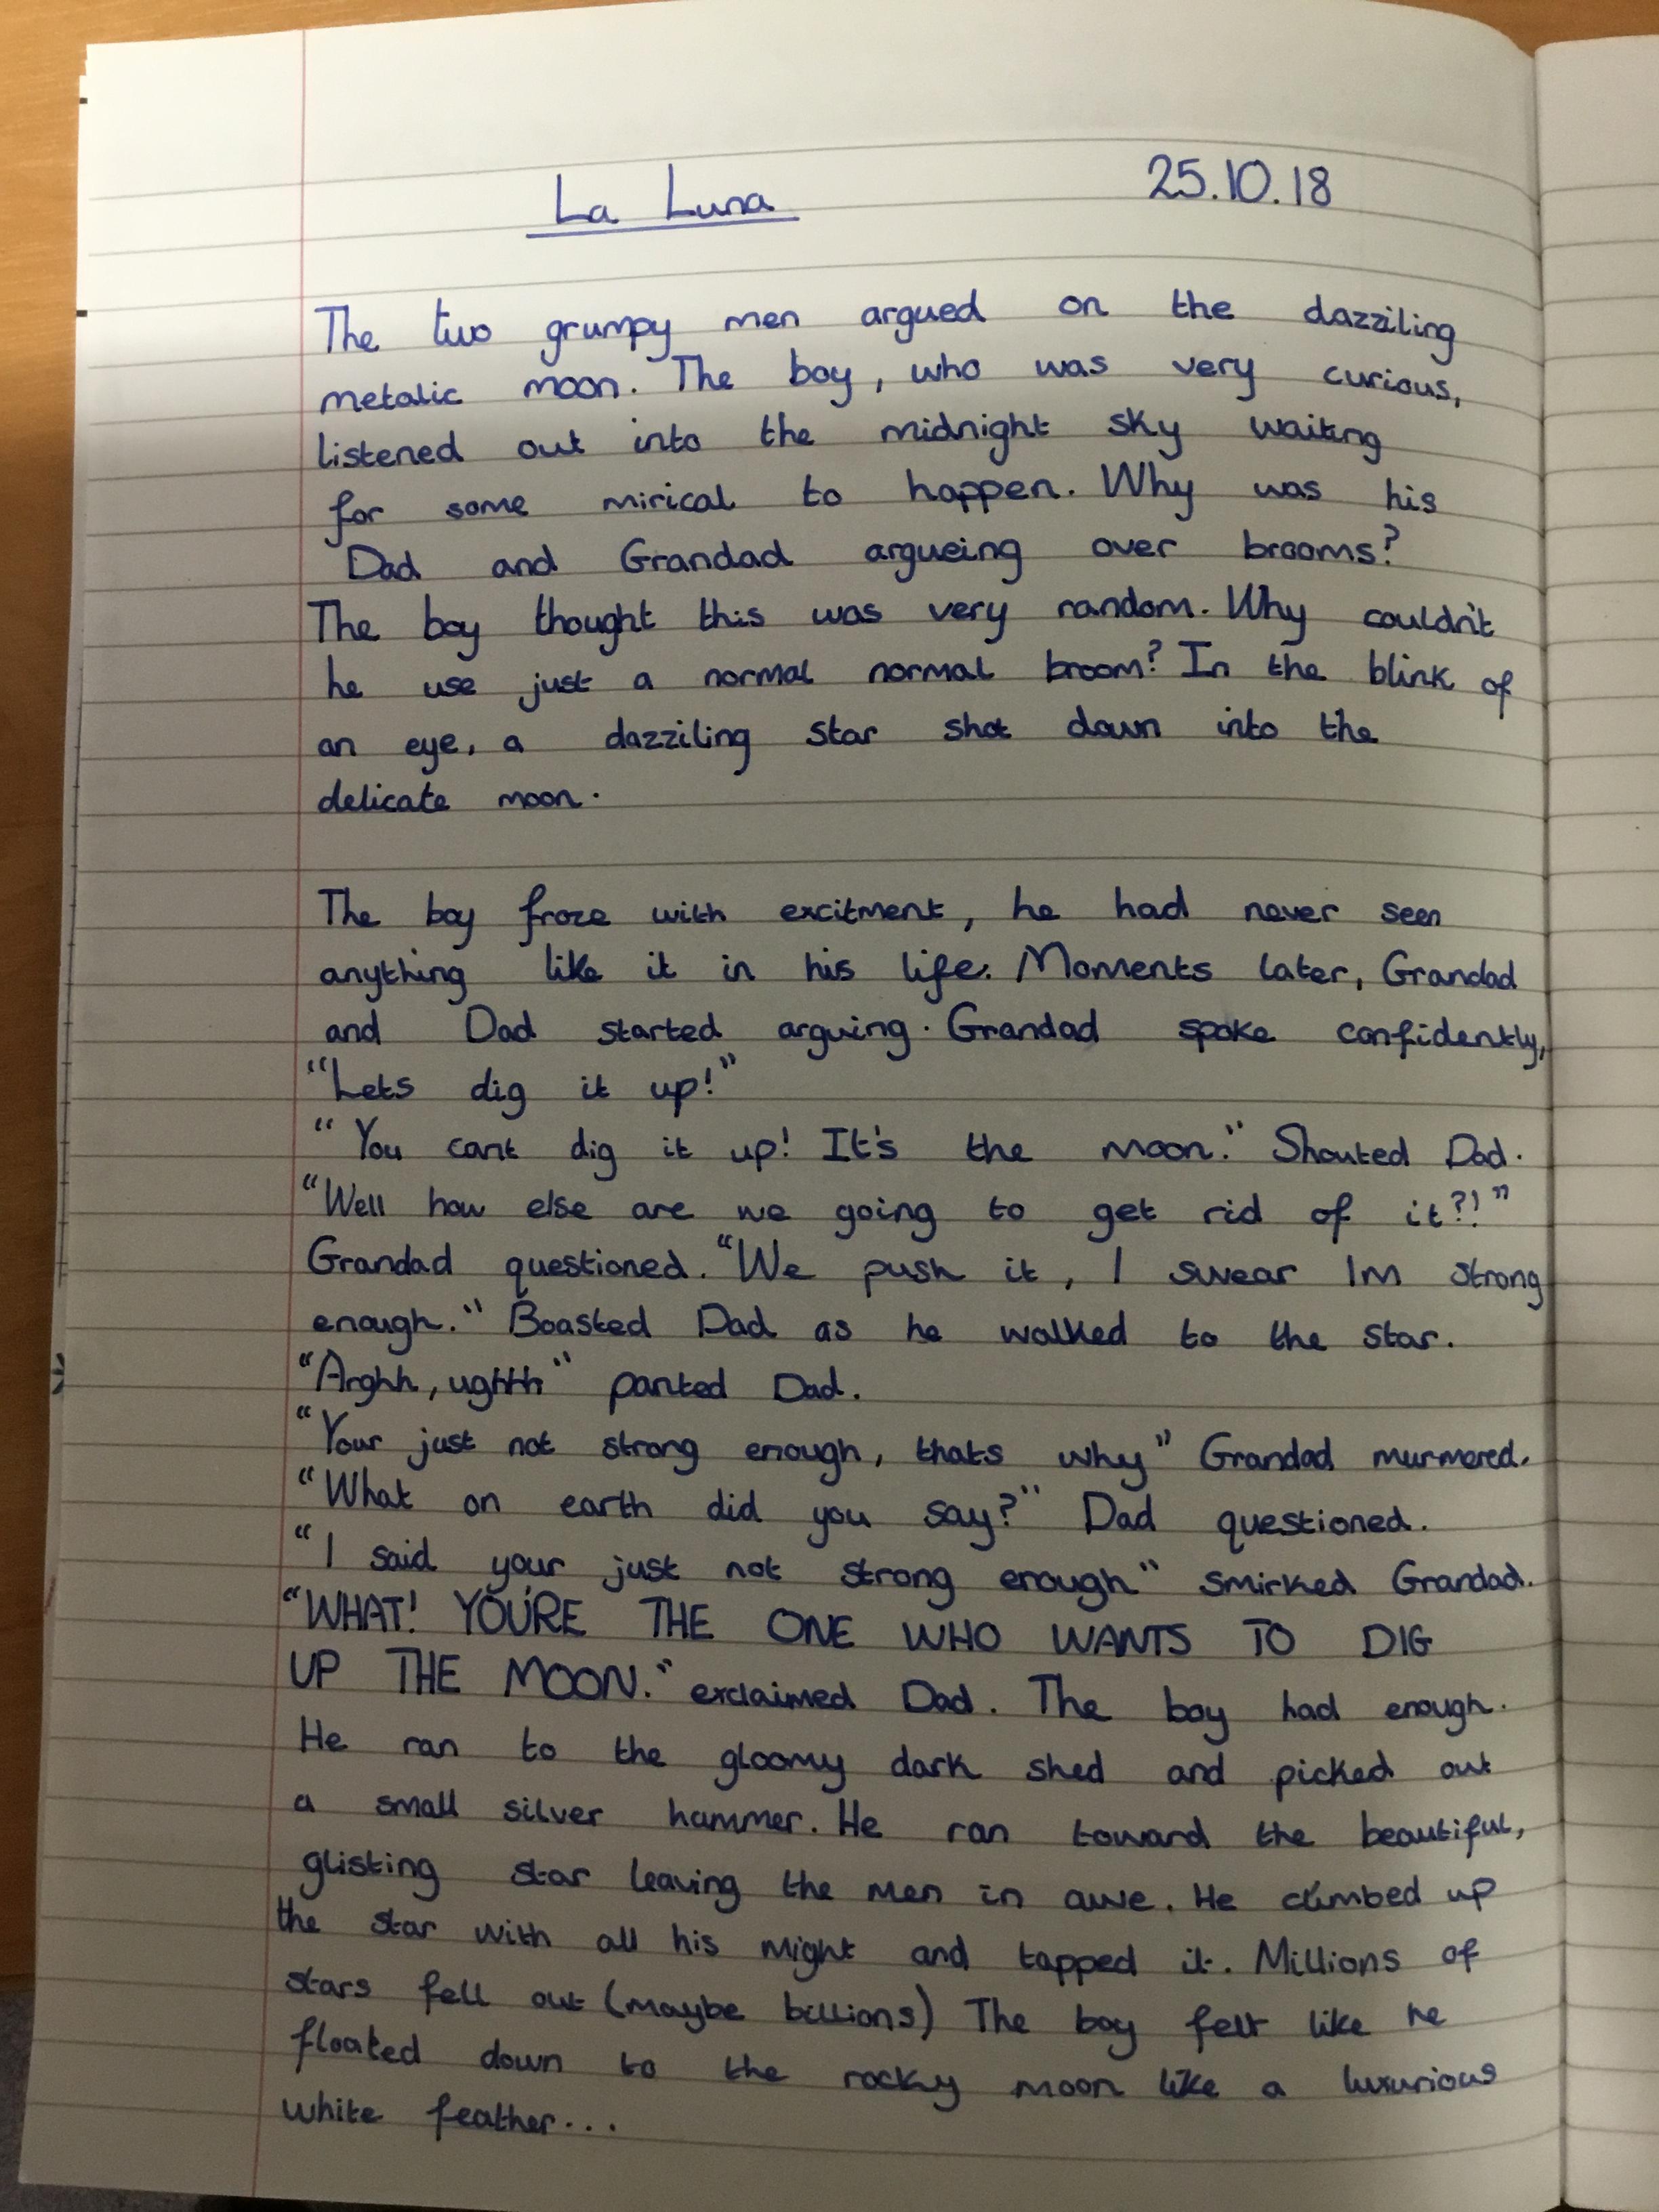 La Luna 25.10.18
The two grumpy men argued on the dazziling
metalic moon. The boy, who was very curious,
listened out into the midnight sky waiting
for some mirical to happen. Why was his
Dad and Grandad argueing over brooms?
The boy thought this was very random. Why couldn't
he use just a normal normal broom? In the blink of
an eye, a dazziling star shot down into the
delicate moon.
The boy froze with excitment, he had never seen
anything like it in his life. Moments later, Grandad
and Dad started arguing. Grandad spoke confidently,
"Lets dig it up!"
"You cant dig it up! It's the moon." Shouted Dad.
"Well how else are we going to get rid of it?!"
Grandad questioned. "We push it, I swear Im strong
enough." Boasted Dad as he walked to the star.
"Arghh, ughhh" panted Dad.
"Your just not strong enough, thats why" Grandad murmored.
"What on earth did you say?" Dad questioned.
"I said your just not strong enough" smirked Grandad.
"WHAT! YOU'RE THE ONE WHO WANTS TO DIG
UP THE MOON." exclaimed Dad. The boy had enough.
He ran to the gloomy dark shed and picked out
a small silver hammer. He ran toward the beautiful,
glisting star leaving the men in awe. He climbed up
the star with all his might and tapped it. Millions of
stars fell out (maybe billions) The boy felt like he
floated down to the rocky moon like a luxurious
white feather...